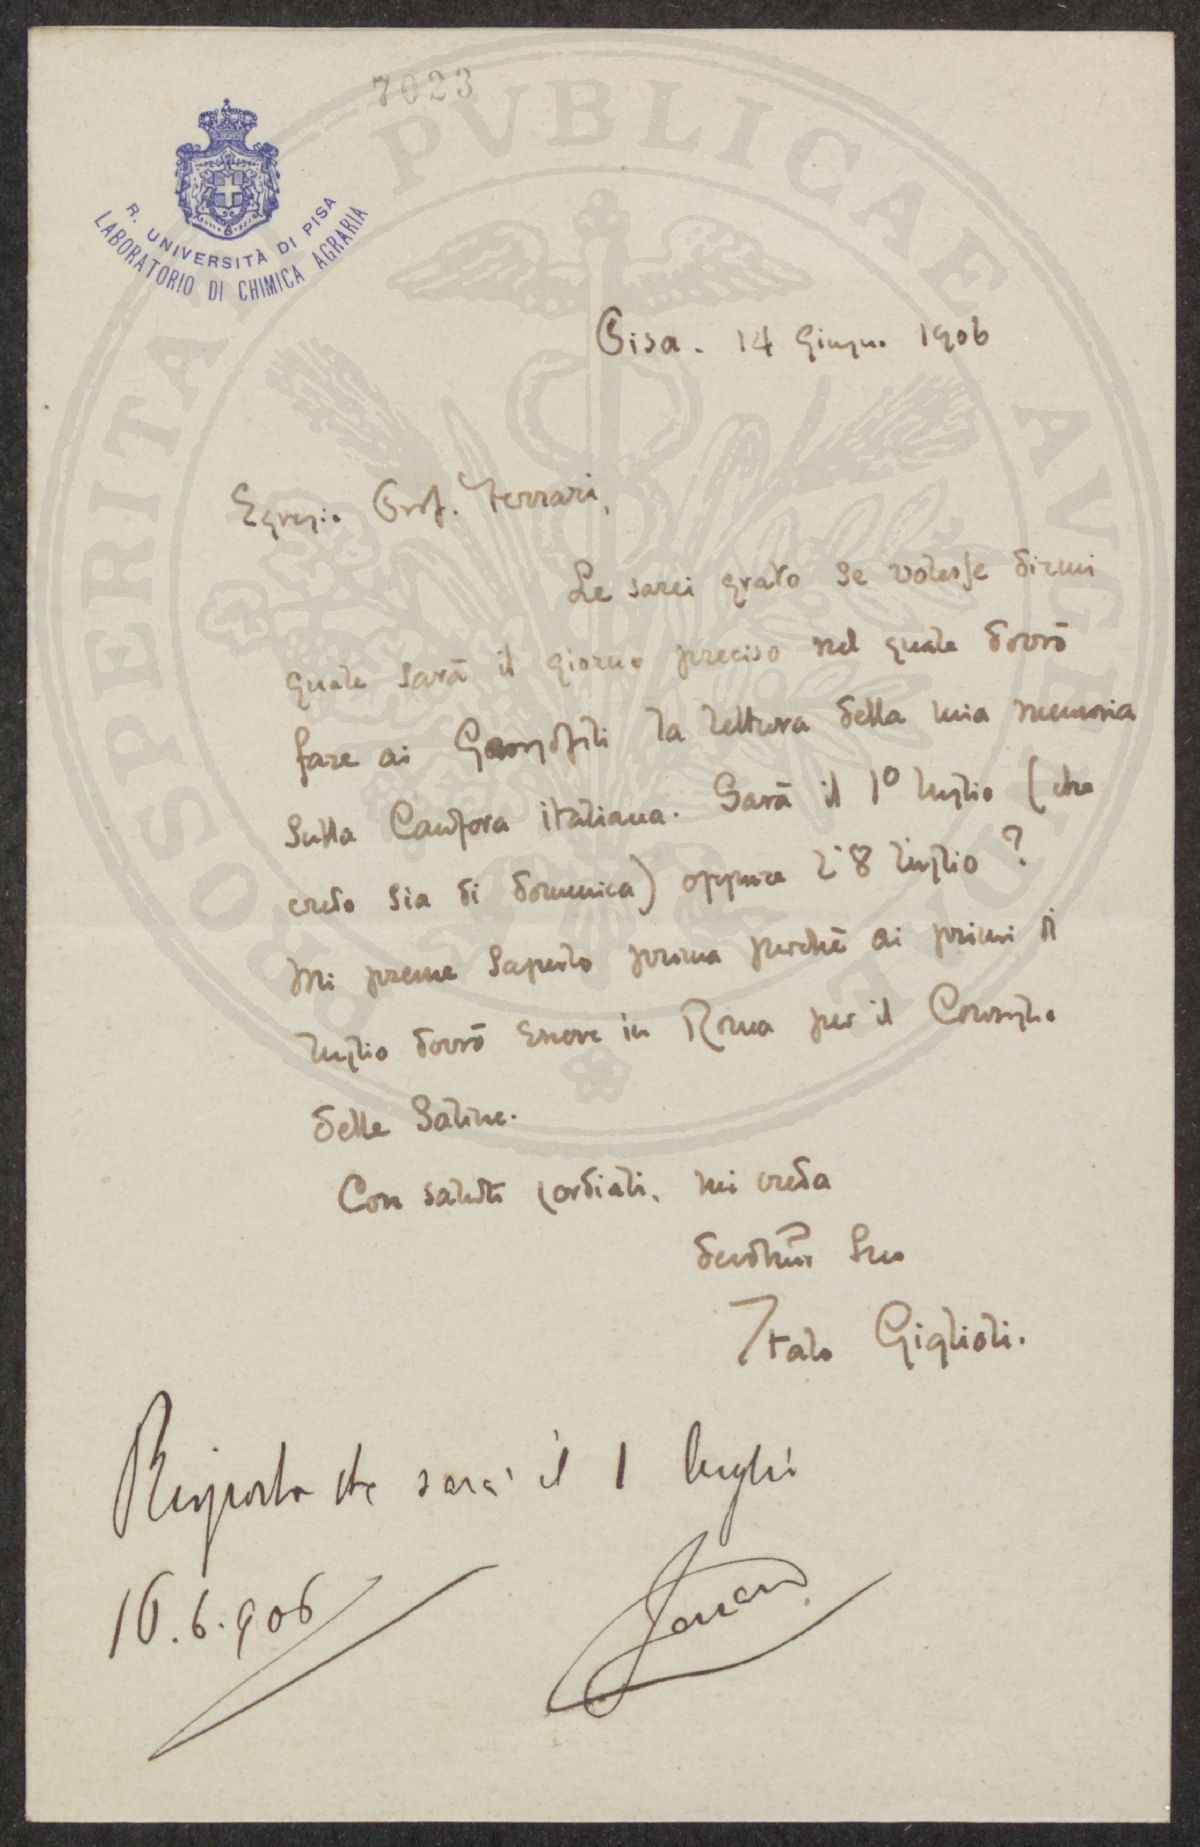 7023
R. UNIVERSITÀ DI PISA
LABORATORIO DI CHIMICA AGRARIA
PROSPERITATI PVBLICAE AVGENDAE
Pisa. 14 Giugno 1906
Egregio Prof. Ferrari,
Le sarei grato se volesse dirmi
quale sarà il giorno preciso nel quale dovrò
fare ai Georgofili la lettura della mia memoria
sulla Canfora italiana. Sarà il 1º luglio (che
credo sia di domenica) oppure l'8 luglio?
Mi preme saperlo prima perchè ai primi di
luglio dovrò essere in Roma per il Consiglio
delle Saline.
Con saluti cordiali, mi creda
devotmo Suo
Italo Giglioli.
Risposto che sarà il 1 luglio
16.6.906
Ferrari